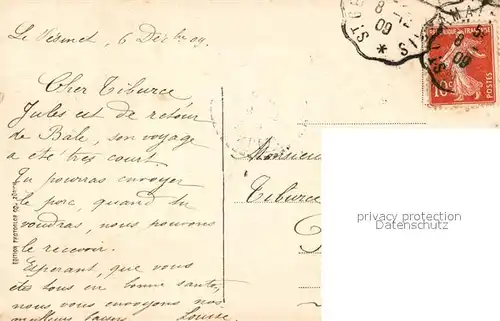 Le Vésinet, 6 Déc bre 09.
Cher Tiburce
Jules est de retour
de Bale, son voyage
a été très court.
Tu pourras envoyer
le porc, quand tu
voudras, nous pouvons
le recevoir.
Espérant, que vous
êtes tous en bonne santé,
nous vous envoyons nos
meilleurs baisers Louise
Monsieur
Tiburce
8 -12
09
POSTES
privacy protection
Datenschutz